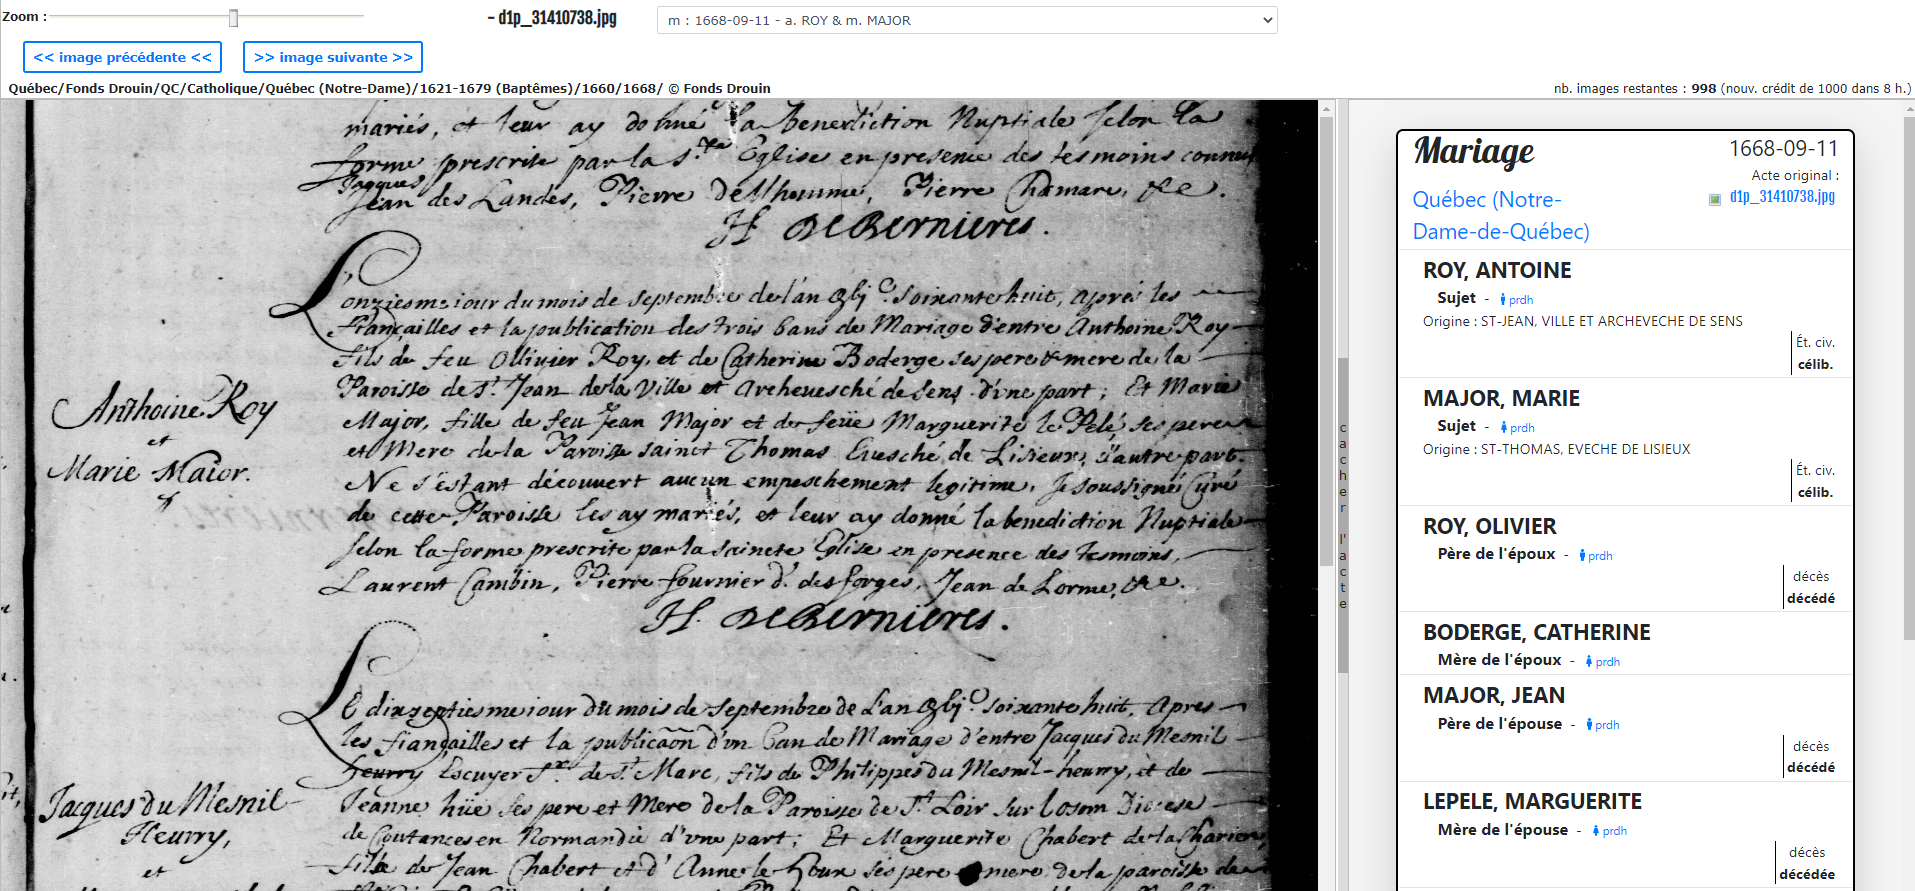 Zoom :
- d1p_31410738.jpg
m : 1668-09-11 - a. ROY & m. MAJOR
<< image précédente <<
>> image suivante >>
Québec/Fonds Drouin/QC/Catholique/Québec (Notre-Dame)/1621-1679 (Baptêmes)/1660/1668/ © Fonds Drouin
nb. images restantes : 998 (nouv. crédit de 1000 dans 8 h.)
mariés, et leur ay donné la benediction Nuptiale selon la
forme prescrite par la s.te Eglise en presence des tesmoins connus
Jacques
Jean des Landes, Pierre de Lhomme, Pierre Chamare, &c.
H. DeBernieres.
L'onziesme iour du mois de septembre de l'an gbj.c soixante huit, apres les
fiançailles et la publication des trois bans de Mariage d'entre Anthoine Roy
fils de feu Ollivier Roy, et de Catherine Boderge ses pere & mere de la
Paroisse de St. Jean de la Ville et Archevesché de Sens d'une part; Et Marie
Major, fille de feu Jean Major et de feüe Marguerite le Pelé, ses pere
et Mere de la Paroisse sainct Thomas Evesché de Lisieux, d'autre part.
Ne s'estant découvert aucun empeschement legitime, Je soussigné Curé
de cette Paroisse les ay mariés, et leur ay donné la benediction Nuptiale
selon la forme prescrite par la saincte Eglise en presence des tesmoins,
Laurent Cambin, Pierre fournier d. des forges, Jean de Lorme, &c.
H. DeBernieres.
Anthoine Roy
et
Marie Maior.
Le dixseptiesme iour du mois de septembre de l'an gbj.c soixante huit, Apres
les fiançailles et la publicaõn d'un ban de Mariage d'entre Jacques du Mesnil
heurry Escuyer Sr. de St. Marc, fils de Philippes du Mesnil-heurry, et de
Jeanne hüe ses pere et Mere de la Paroisse de St. Loir sur Losom Diocese
de Coutances en Normandie d'une part; Et Marguerite Chabert de la Charier
fille de Jean Chabert et d'Anne le hour ses pere mere, de la paroisse de
Jacques du Mesnil-
Heurry,
et
cacher l'acte
Mariage
1668-09-11
Acte original :
d1p_31410738.jpg
Québec (Notre-
Dame-de-Québec)
ROY, ANTOINE
Sujet - prdh
Origine : ST-JEAN, VILLE ET ARCHEVECHE DE SENS
Ét. civ.
célib.
MAJOR, MARIE
Sujet - prdh
Origine : ST-THOMAS, EVECHE DE LISIEUX
Ét. civ.
célib.
ROY, OLIVIER
Père de l'époux - prdh
décès
décédé
BODERGE, CATHERINE
Mère de l'époux - prdh
MAJOR, JEAN
Père de l'épouse - prdh
décès
décédé
LEPELE, MARGUERITE
Mère de l'épouse - prdh
décès
décédée